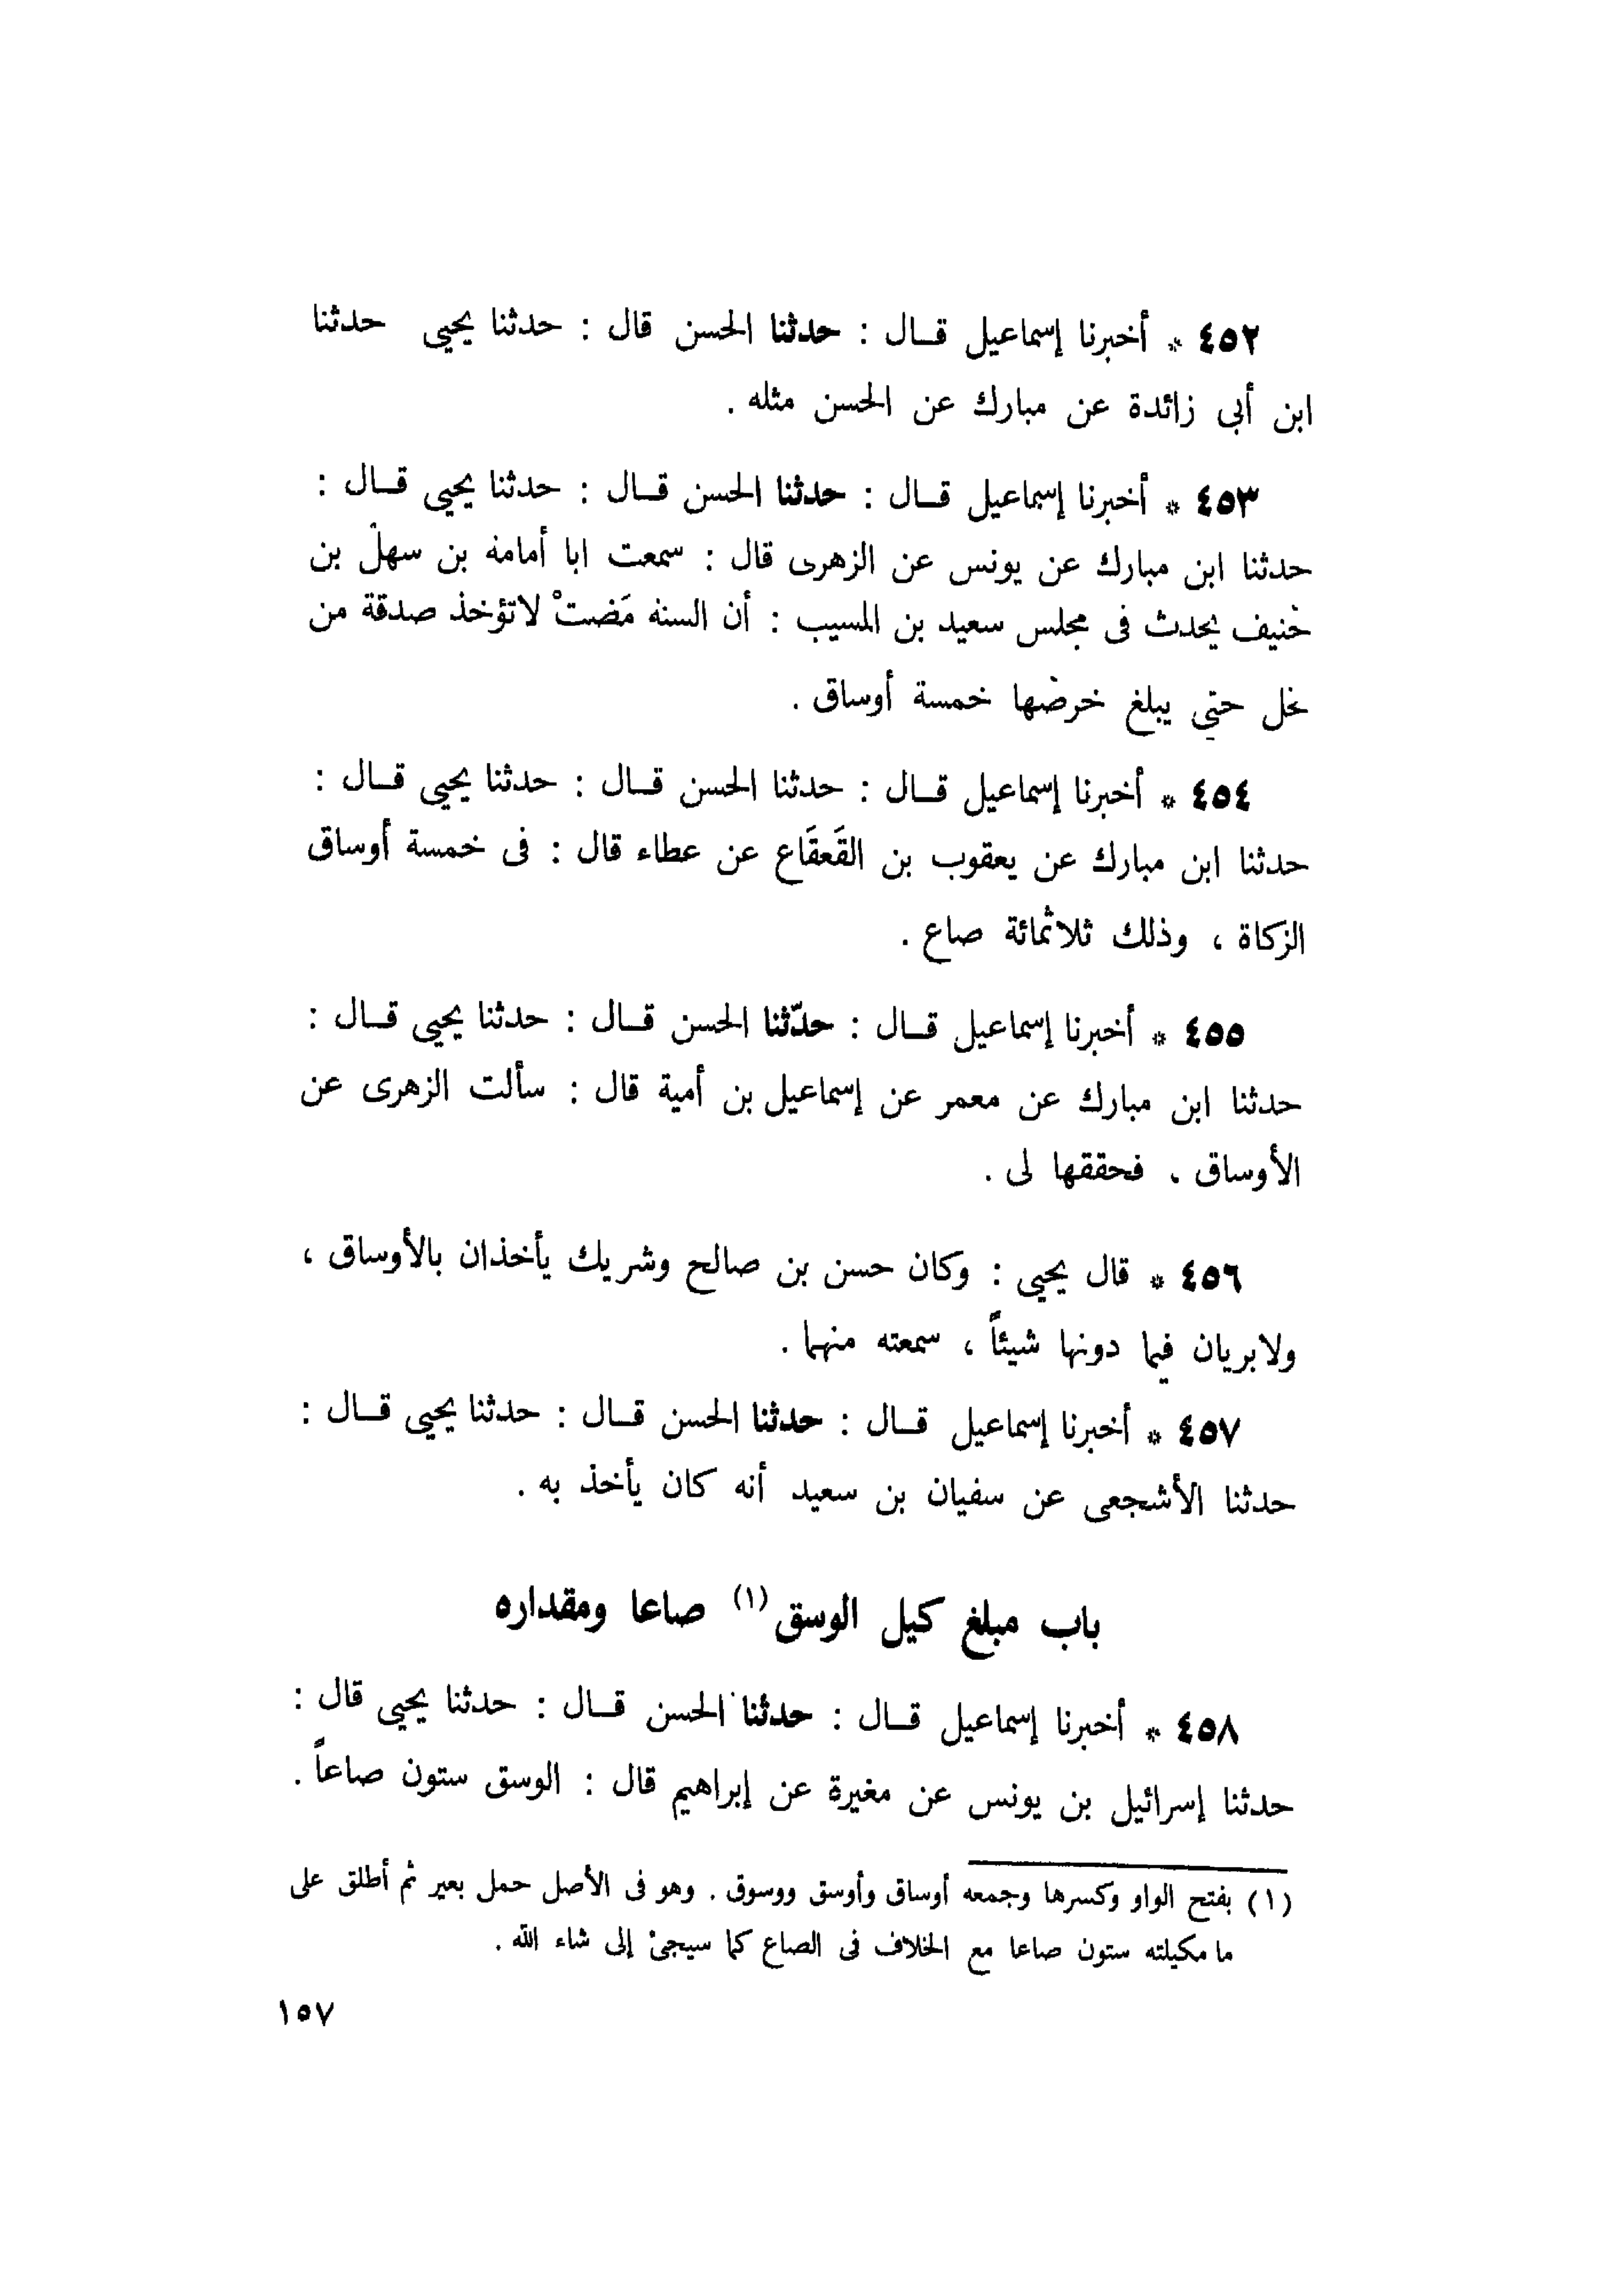 ٤٥٢ * أخبرنا إسماعيل قال : حدثنا الحسن قال : حدثنا يحيى حدثنا
ابن أبى زائدة عن مبارك عن الحسن مثله .
٤٥٣ * أخبرنا إسماعيل قال : حدثنا الحسن قال : حدثنا يحيى قال :
حدثنا ابن مبارك عن يونس عن الزهرى قال : سمعت ابا أمامة بن سهل بن
حنيف يحدث فى مجلس سعيد بن المسيب : أن السنة مَضتْ لاتؤخذ صدقة من
نخل حتى يبلغ خرصها خمسة أوساق .
٤٥٤ * أخبرنا إسماعيل قال : حدثنا الحسن قال : حدثنا يحيى قال :
حدثنا ابن مبارك عن يعقوب بن القَعقَاع عن عطاء قال : فى خمسة أوساق
الزكاة ، وذلك ثلاثمائة صاع .
٤٥٥ * أخبرنا إسماعيل قال : حدّثنا الحسن قال : حدثنا يحيى قال :
حدثنا ابن مبارك عن معمر عن إسماعيل بن أمية قال : سألت الزهرى عن
الأوساق ، فحققها لى .
٤٥٦ * قال يحيى : وكان حسن بن صالح وشريك يأخذان بالأوساق ،
ولايريان فيما دونها شيئاً ، سمعته منهما .
٤٥٧ * أخبرنا إسماعيل قال : حدثنا الحسن قال : حدثنا يحيى قال :
حدثنا الأشجعى عن سفيان بن سعيد أنه كان يأخذ به .
باب مبلغ كيل الوسق(١) صاعا ومقداره
٤٥٨ * أخبرنا إسماعيل قال : حدثنا الحسن قال : حدثنا يحيى قال :
حدثنا إسرائيل بن يونس عن مغيرة عن إبراهيم قال : الوسق ستون صاعاً .
(١) بفتح الواو وكسرها وجمعه أوساق وأوسق ووسوق . وهو فى الأصل حمل بعير ثم أطلق على
ما مكيلته ستون صاعا مع الخلاف فى الصاع كما سيجئ إلى شاء الله .
١٥٧